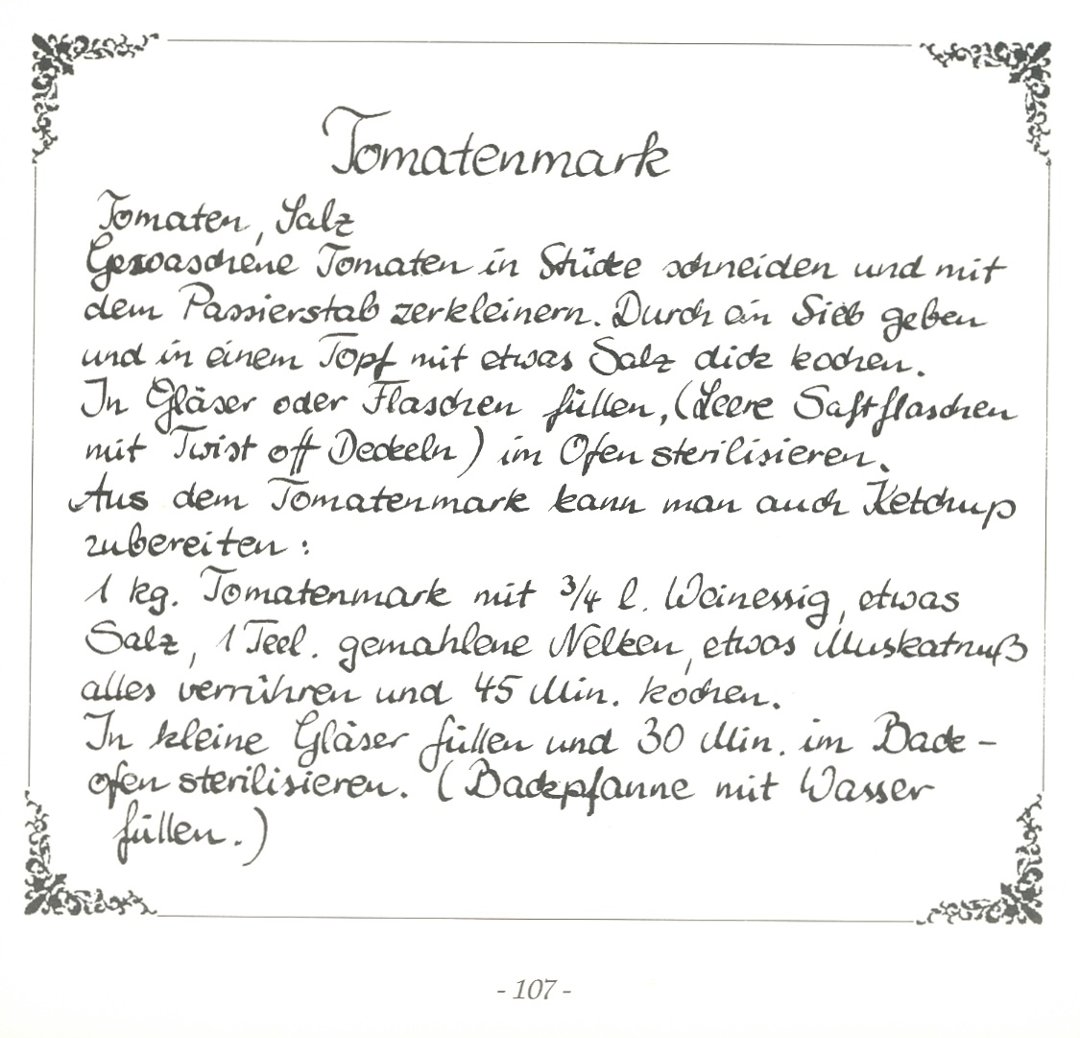 Tomatenmark
Tomaten, Salz
Gewaschene Tomaten in Stücke schneiden und mit
dem Passierstab zerkleinern. Durch ein Sieb geben
und in einem Topf mit etwas Salz dick kochen.
In Gläser oder Flaschen füllen, (Leere Saftflaschen
mit Twist off Deckeln) im Ofen sterilisieren.
Aus dem Tomatenmark kann man auch Ketchup
zubereiten:
1 kg. Tomatenmark mit 3/4 l. Weinessig, etwas
Salz, 1 Teel. gemahlene Nelken, etwas Muskatnuß
alles verrühren und 45 Min. kochen.
In kleine Gläser füllen und 30 Min. im Back-
ofen sterilisieren. (Backpfanne mit Wasser
füllen.)
- 107 -